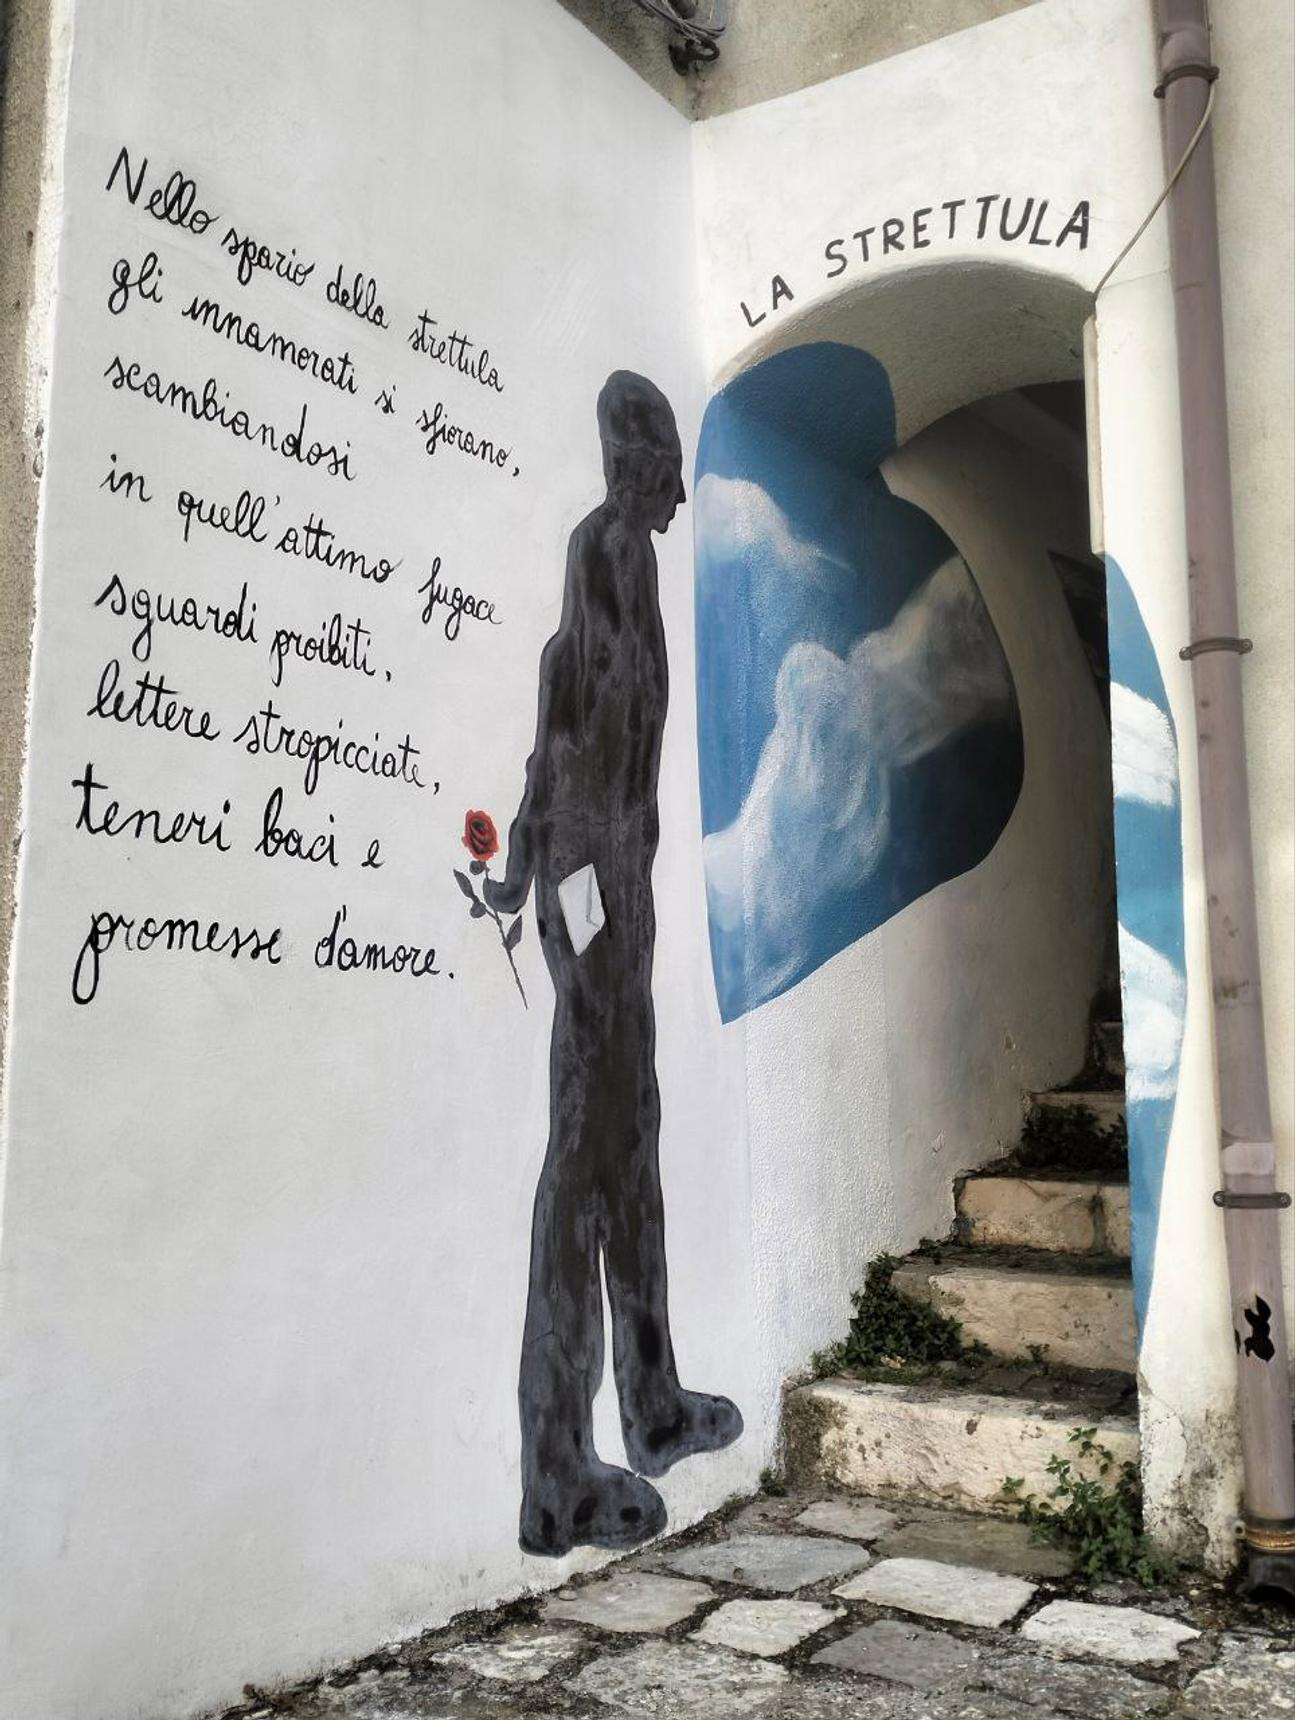 Nello spazio della strettula
gli innamorati si sfiorano,
scambiandosi
in quell'attimo fugace
sguardi proibiti,
lettere stropicciate,
teneri baci e
promesse d'amore.
LA STRETTULA